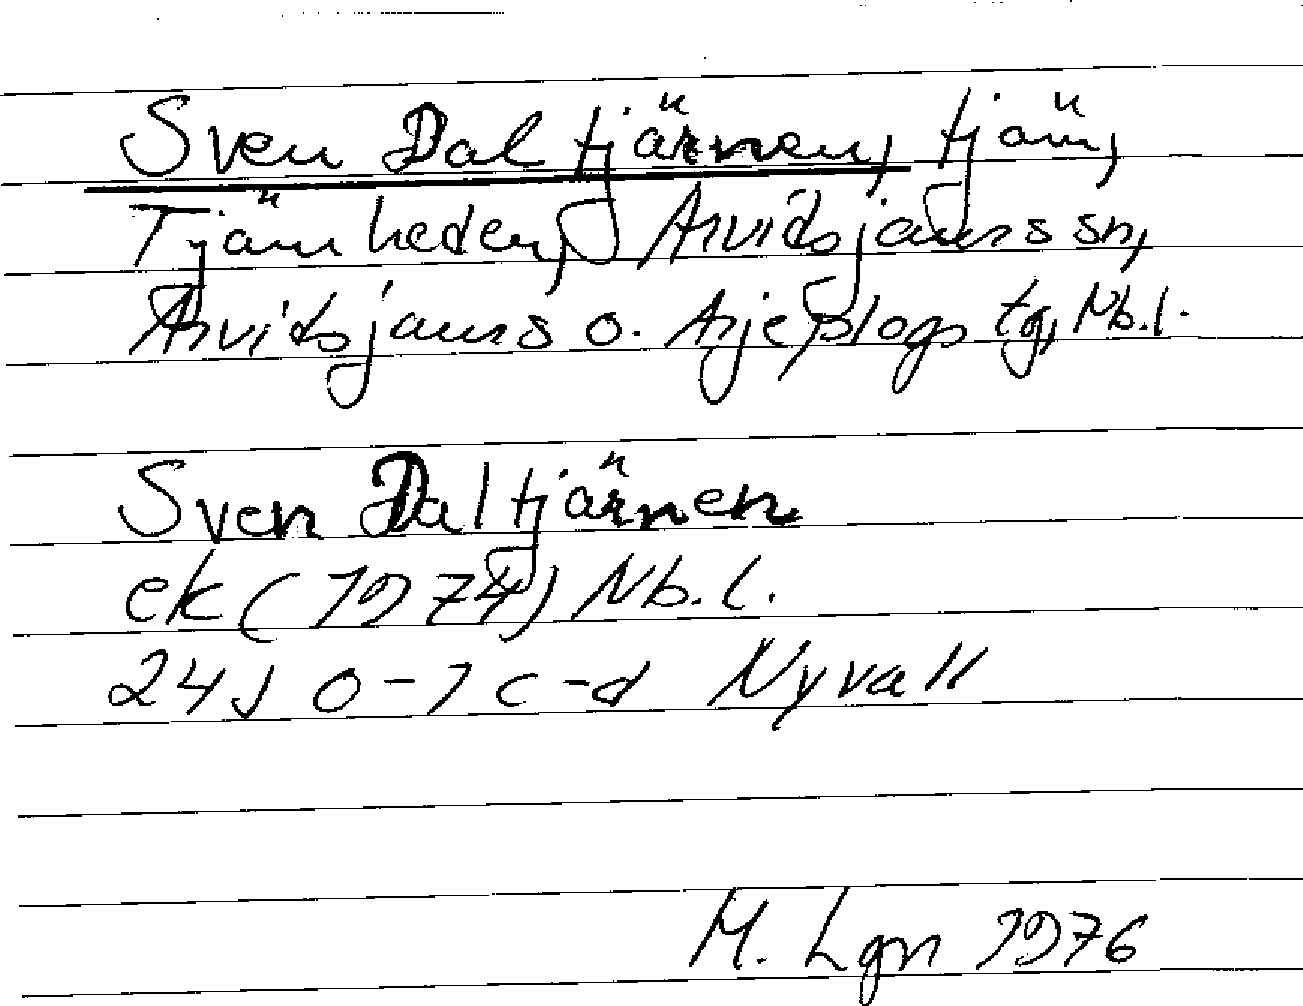 Sven Daltjärnen, tjärn,
Tjärnheden, Arvidsjaurs sn,
Arvidsjaurs o. Arjeplogs tg, Nb.l.
Sven Daltjärnen
ek (1974) Nb.l.
24J 0-1 c-d Nyvall
M. Lgn 1976